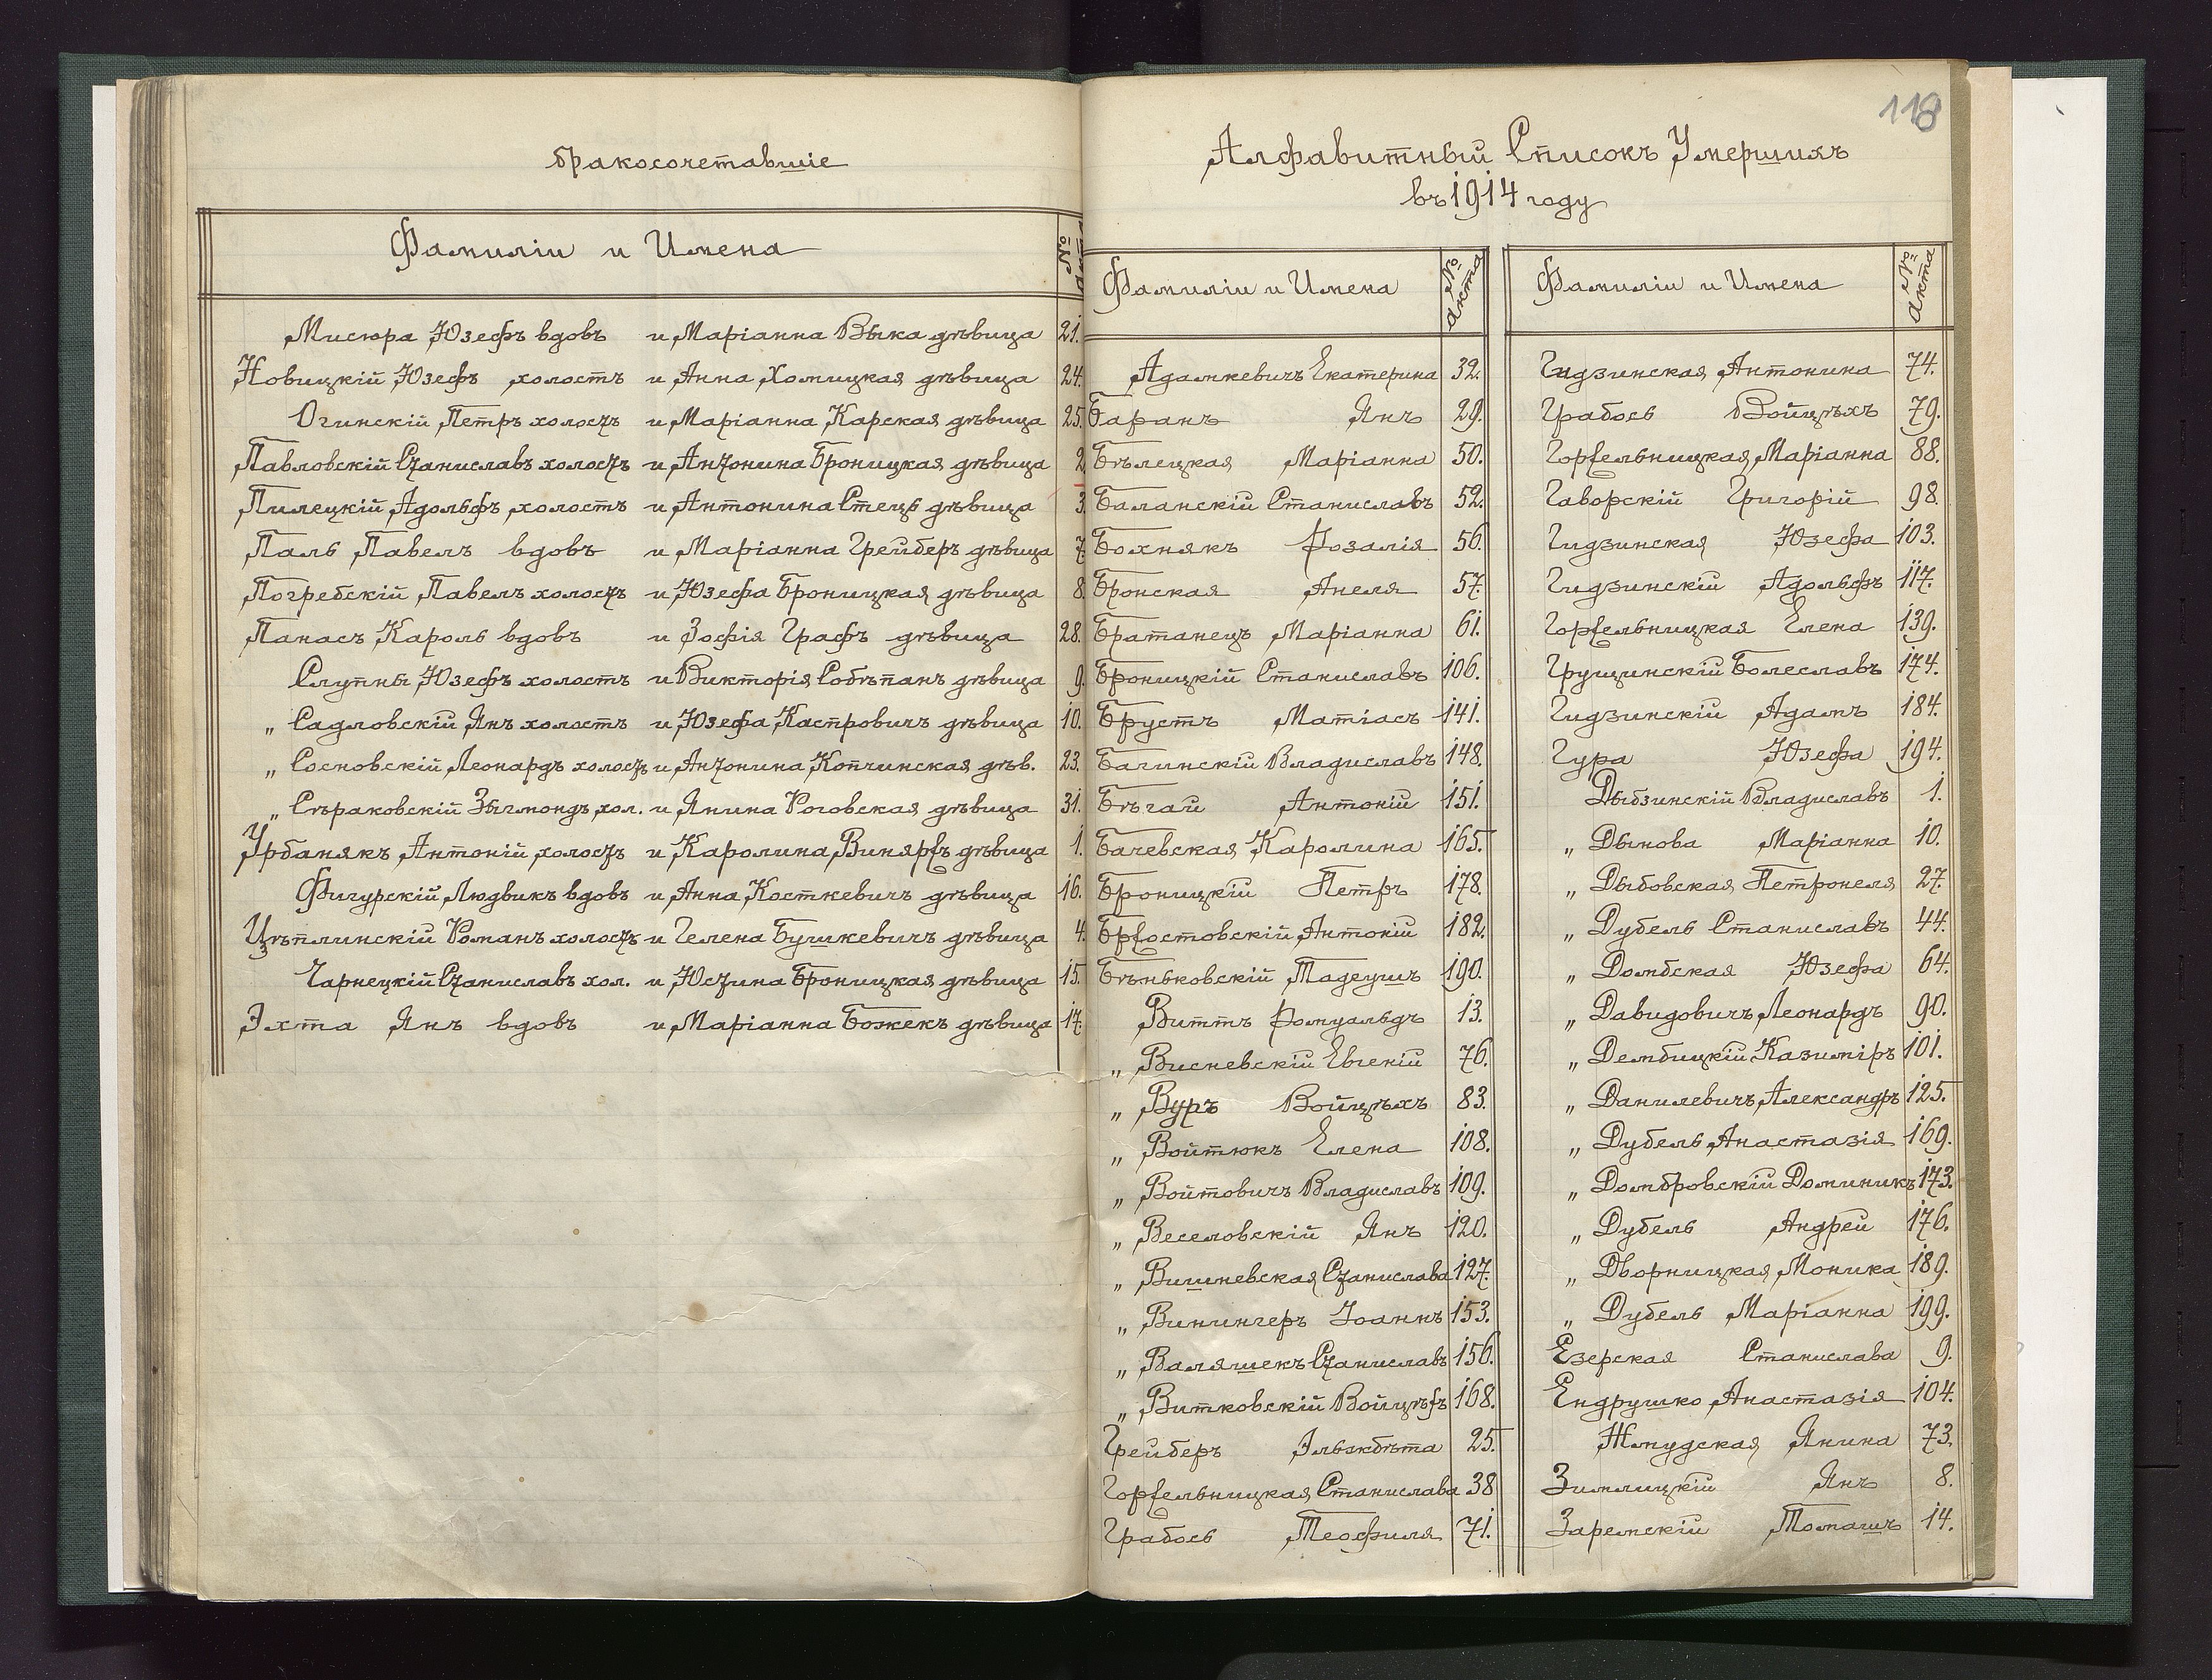 бракосочетавшіе
Фамиліи и Имена
№ акта
Мисюра Юзефъ вдовъ и Маріанна Выка дѣвица 21.
Новицкій Юзефъ холостъ и Анна Хомицкая дѣвица 24.
Огинскій Петръ холостъ и Маріанна Карская дѣвица 25.
Павловскій Станиславъ холостъ и Антонина Броницкая дѣвица 2
Пилецкій Адольфъ холостъ и Антонина Стець дѣвица 3.
Паль Павелъ вдовъ и Маріанна Грейберъ дѣвица 7.
Погребскій Павелъ холостъ и Юзефа Броницкая дѣвица 8.
Панасъ Кароль вдовъ и Зофія Графъ дѣвица 28.
Слупны Юзефъ холостъ и Викторія Собѣпанъ дѣвица 9.
„ Садловскій Янъ холостъ и Юзефа Кастровичъ дѣвица 10.
„ Сосновскій Леонардъ холостъ и Антонина Копчинская дѣв. 23.
„ Сѣраковскій Зыгмондъ хол. и Янина Роговская дѣвица 31.
Урбанякъ Антоній холостъ и Каролина Винярſъ дѣвица 1.
Фигурскій Людвикъ вдовъ и Анна Косткевичъ дѣвица 16.
Цѣплинскій Романъ холостъ и Гелена Бушкевичъ дѣвица 4.
Чарнецкій Станиславъ хол. и Юстина Броницкая дѣвица 15.
Эхта Янъ вдовъ и Маріанна Божекъ дѣвица 17.
118
Алфавитный Списокъ Умершихъ
въ 1914 году
Фамиліи и Имена
№ акта
Адамкевичъ Екатерина 32.
Баранъ Янъ 29.
Бѣлецкая Маріанна 50.
Баланскій Станиславъ 52.
Бохнякъ Розалія 56.
Бронская Анеля 57.
Братанецъ Маріанна 61.
Броницкій Станиславъ 106.
Брустъ Матіасъ 141.
Багинскій Владиславъ 148.
Бѣгай Антоній 151.
Бачевская Каролина 165.
Броницкій Петръ 178.
Брſостовскій Антоній 182.
Бѣньковскій Тадеушъ 190.
Виттъ Ромуальдъ 13.
„ Висневскій Евгеній 76.
„ Вуръ Войцѣхъ 83.
„ Войтюкъ Елена 108.
„ Войтовичъ Владиславъ 109.
„ Веселовскій Янъ 120.
„ Вишневская Станислава 127.
„ Винингеръ Іоаннъ 153.
„ Валяшекъ Станиславъ 156.
„ Витковскій Войцѣхъ 168.
Грейберъ Эльжбѣта 25.
Горſельницкая Станислава 38
Грабось Теофиля 71.
Фамиліи и Имена
№ акта
Гидзинская Антонина 74.
Грабось Войцѣхъ 79.
Горſельницкая Маріанна 88.
Гаворскій Григорій 98.
Гидзинская Юзефа 103.
Гидзинскій Адольфъ 117.
Горſельницкая Елена 139.
Грущинскій Болеславъ 174.
Гидзинскій Адамъ 184.
Гура Юзефа 194.
Дыбзинскій Владиславъ 1.
„ Дынова Маріанна 10.
„ Дыбовская Петронеля 27.
„ Дубель Станиславъ 44.
„ Домбская Юзефа 64.
„ Давидовичъ Леонардъ 90.
„ Дембицкій Казиміръ 101.
„ Данилевичъ Александръ 125.
„ Дубель Анастазія 169.
„ Домбровскій Доминикъ 173.
„ Дубель Андрей 176.
„ Дворницкая Моника 189.
„ Дубель Маріанна 199.
Езерская Станислава 9.
Ендрушко Анастазія 104.
Жмудская Янина 73.
Зимлицкій Янъ 8.
Заремскій Томашъ 14.